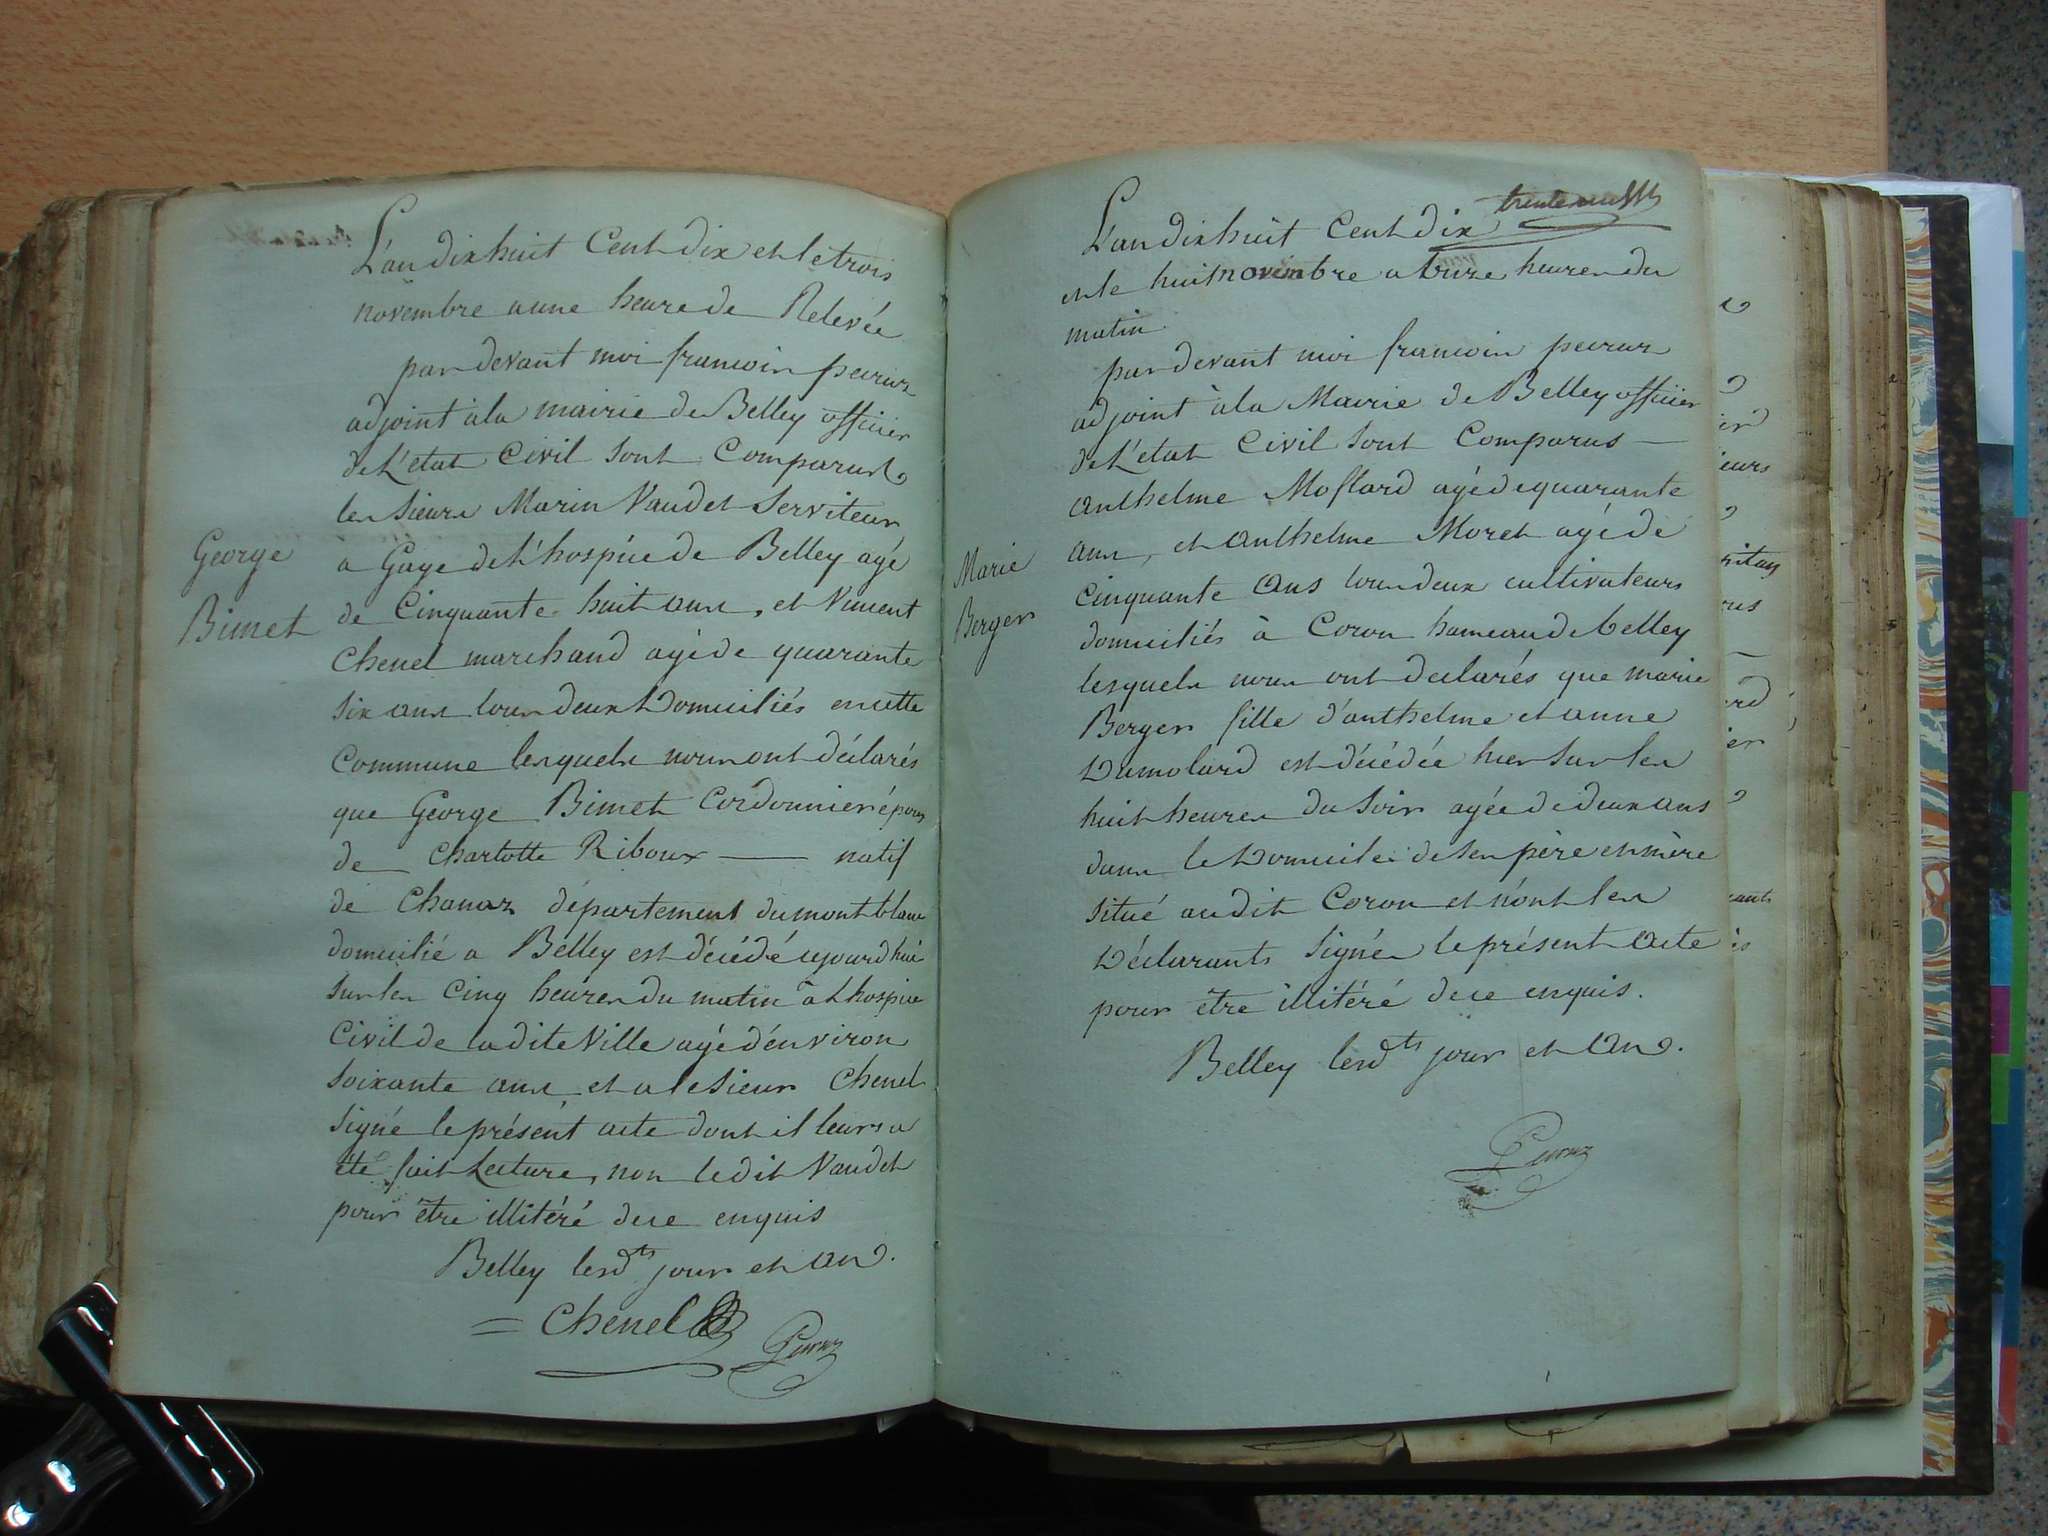 L'an dix huit Cent dix et le trois
novembre a une heure de Relevée
par devant moi francoin peirier
adjoint à la mairie de Belley officier
de L'état Civil sont Comparus
les sieurs Marin Vaudet Serviteur
a Gage de L'hospice de Belley agé
de Cinquante huit ans, et Vincent
Chenel marchand agé de quarante
six ans tous deux Domiciliés en cette
Commune lesquels nous ont déclarés
que George Bimet Cordonnier épous
de Charlotte Riboux — natif
de Chanaz département du mont blanc
domicilié a Belley est décédé cejourdhui
sur les cinq heures du matin à Lhospice
Civil de ladite Ville agé d'environ
soixante ans et a le sieur Chenel
signé le présent acte dont il leurs a
été fait Lecture, non ledit Vaudet
pour être illitéré de ce enquis
Belley lesdts jour et an.
= Chenel
George
Bimet
L'an dix huit Cent dix
et le huit novembre a onze heures du
matin
par devant moi francoin
adjoint à la Mairie de Belley officier
de L'état Civil sont Comparus —
anthelme Mollard agé de quarante
ans, et anthelme Moret agé de
Cinquante ans tous deux cultivateurs
domiciliés à Coron hameau de belley
lesquels nous ont déclarés que marie
Berger fille d'anthelme et anne
Dumolard est décédée hier sur les
huit heures du soir agée de deux ans
dans le Domicile de ses père et mère
situé audit Coron et n'ont les
Déclarants signés le présent acte
pour être illitéré de ce enquis.
Belley lesdts jour et an.
Marie
Berger